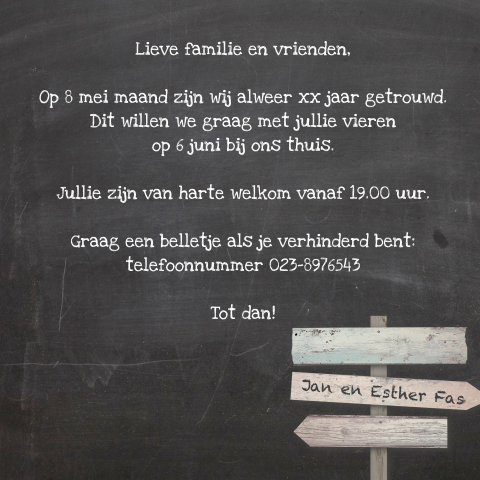 Lieve familie en vrienden,
Op 8 mei maand zijn wij alweer xx jaar getrouwd.
Dit willen we graag met jullie vieren
op 6 juni bij ons thuis.
Jullie zijn van harte welkom vanaf 19.00 uur.
Graag een belletje als je verhinderd bent:
telefoonnummer 023-8976543
Tot dan!
Jan en Esther Fas